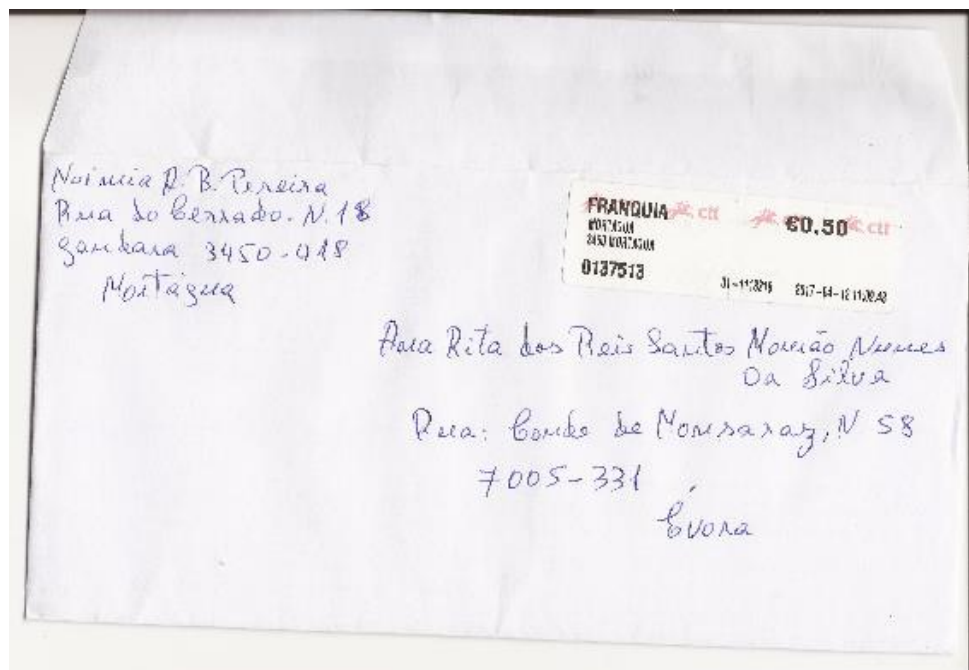 Noémia R. B. Pereira
Rua do Cerrado. N. 18
Gandara 3450-018
Mortágua
FRANQUIA ctt ctt €0.50 ctt
MORTAGUA
3450 MORTAGUA
0137513
Ana Rita dos Reis Santos Mourão Nunes
Da Silva
Rua: Conde de Monsaraz, N 58
7005-331
Évora